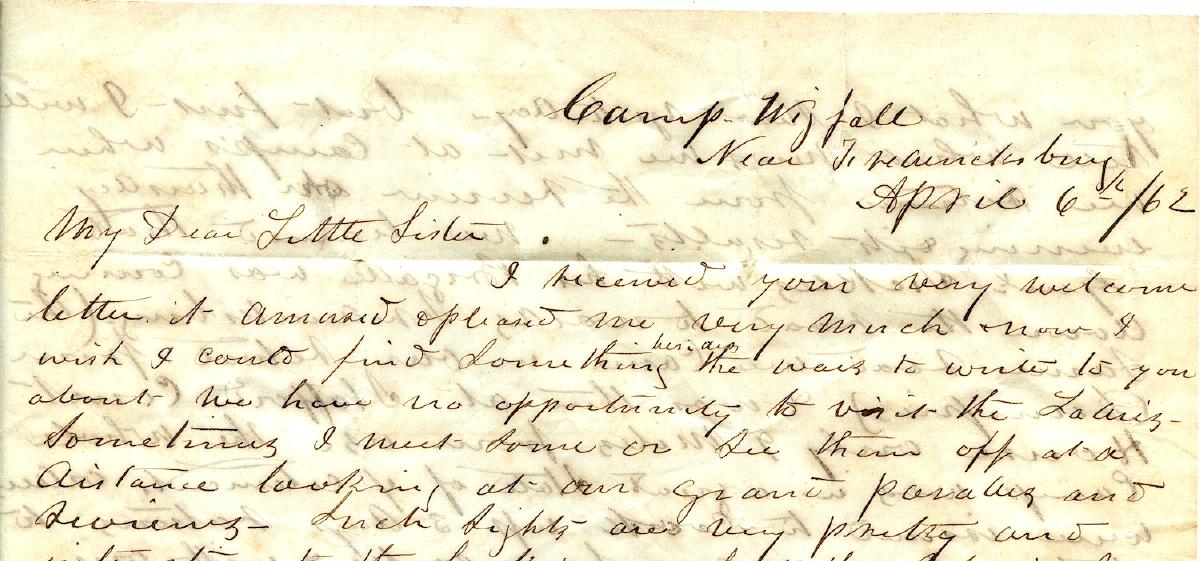 Camp Wigfall
Near Fredericksburg
April 6th/62
My Dear Little Sister
I received your very welcome
letter it amused & pleased me very much & now I
wish I could find something besides the war to write to you
about We have no opportunity to visit the Ladies -
Sometimes I meet some or see them off at a
distance looking at our grand parades and
reviews - Such sights are very pretty and